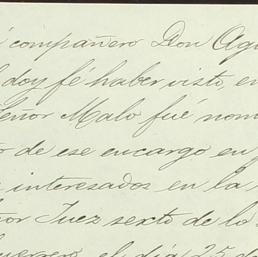 é compañero Don Agu
doy fé haber visto, en
Señor Malo fué nom
r de ese encargo en
interesados en la
or Juez sexto de lo
Guerrero, el día 25 d